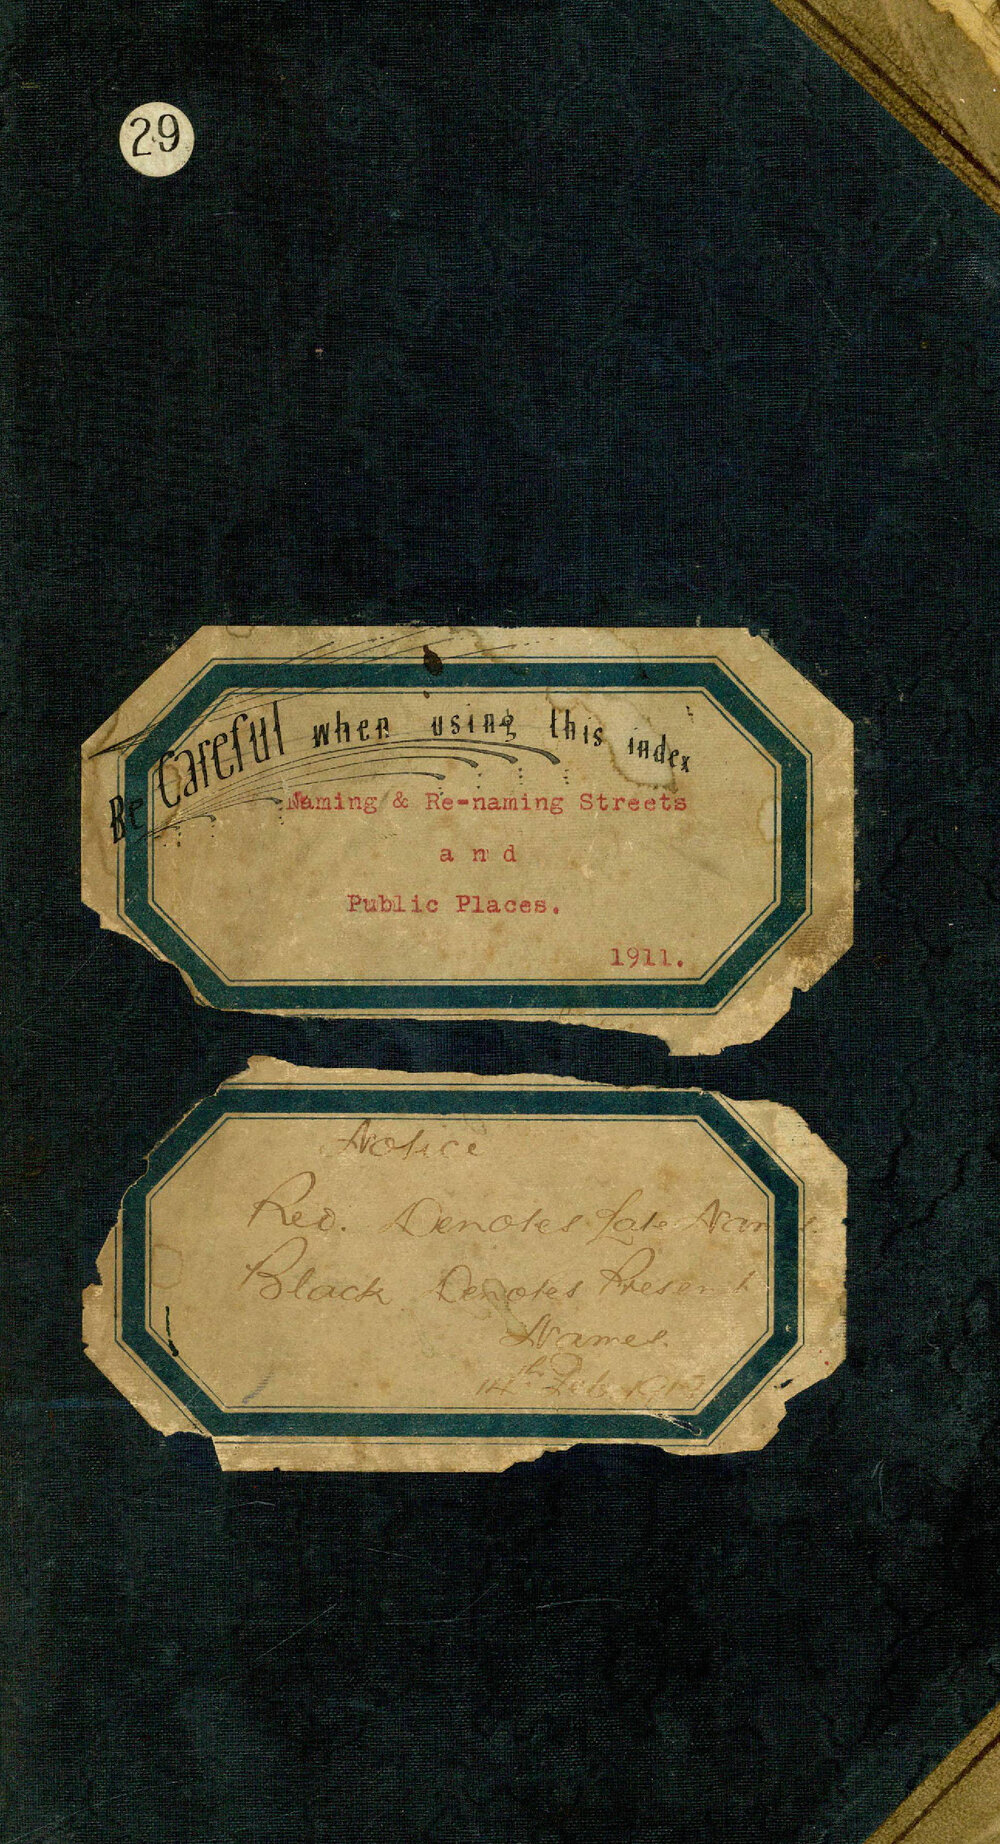 29
Be Careful when using this index
Naming & Re-naming Streets
and
Public Places.
1911.
Notice
Red. Denotes Late Names.
Black Denotes Present
Names.
14th Feb